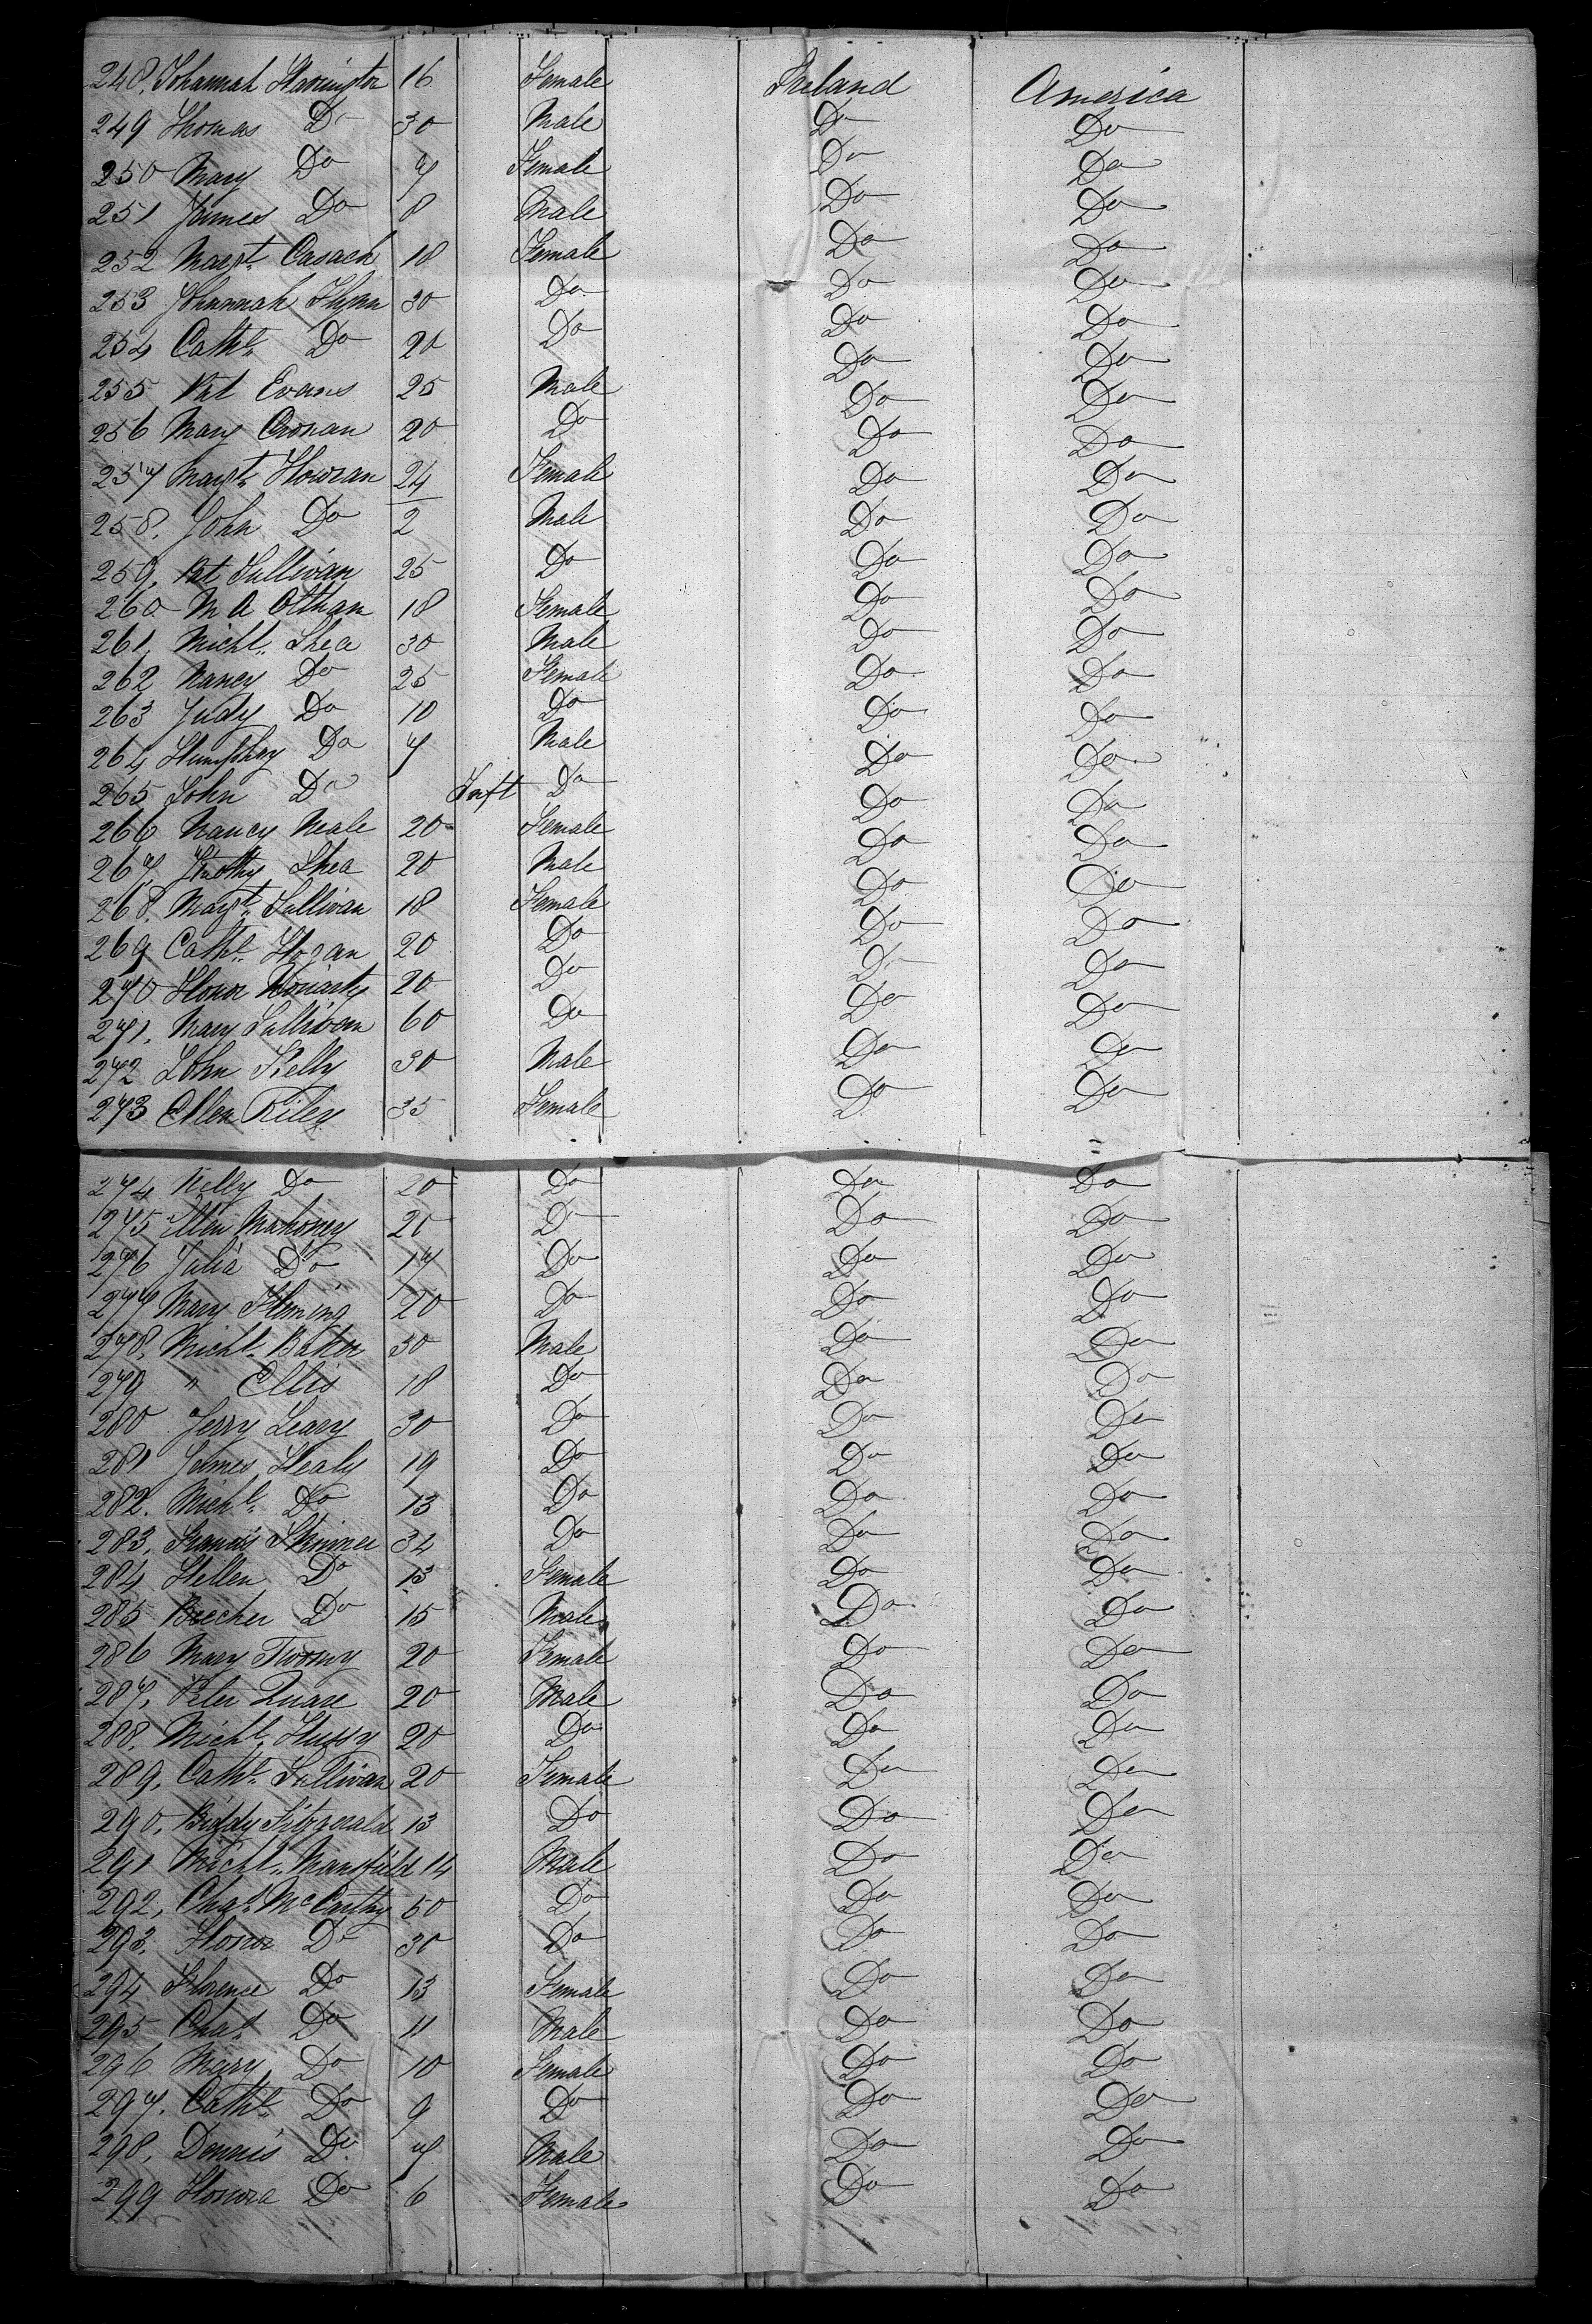 248. Johannah Harrington 16 Female Ireland America
249 Thomas Do 30 Male Do Do
250 Mary Do 7 Female Do Do
251 James Do 8 Male Do Do
252 Margt. Casack 18 Female Do Do
253 Johannah Flynn 30 Do Do Do
254 Cathe. Do 20 Do Do Do
255 Pat Evans 25 Male Do Do
256 Mary Cronan 20 Do Do Do
257 Margt. Howran 24 Female Do Do
258. John Do 2 Male Do Do
259, Pat Sullivan 25 Do Do Do
260 M A 18 Female Do Do
261, Michl. Shea 30 Male Do Do
262 Nancy Do 25 Female Do Do
263 Judy Do 10 Do Do Do
264 Humphry Do 7 Male Do Do
265 John Do Inft Do Do Do
266 Nancy Neale 20 Female Do Do
267, Shea 20 Male Do Do
268. Margt. Sullivan 18 Female Do Do
269 Cathe. Hogan 20 Do Do Do
270 Honor Moriarty 20 Do Do Do
271, Mary Sullivan 60 Do Do Do
272 John Kelly 30 Male Do Do
273 Ellen Riley 35 Female Do Do
274 Kelly Do 20 Do Do Do
275 Ellen Mahoney 20 Do Do Do
276 Julia Do 17 Do Do Do
277 Mary Fleming 20 Do Do Do
278. Michl. Baker 30 Male Do Do
279 " Ellis 18 Do Do Do
280 Jerry Leary 30 Do Do Do
281 James Healy 19 Do Do Do
282. Michl. Do 13 Do Do Do
283, Francis Skinner 32 Do Do Do
284 Hellen Do 13 Female Do Do
285 Beecher Do 15 Male Do Do
286 Mary Twomy 20 Female Do Do
287, Peter 20 Male Do Do
288. Michl. Hussy 20 Do Do Do
289, Cathe. Sullivan 20 Female Do Do
290, Biddy Fitzgerald 13 Do Do Do
291 Michl. Mansfield 14 Male Do Do
292, Chas. McCarthy 50 Do Do Do
293. Honor Do 30 Do Do Do
294 Florence Do 13 Female Do Do
295 Chas. Do 11 Male Do Do
296 Mary Do 10 Female Do Do
297. Cathe. Do 9 Do Do Do
298, Dennis Do 7 Male Do Do
299 Honora Do 6 Female Do Do